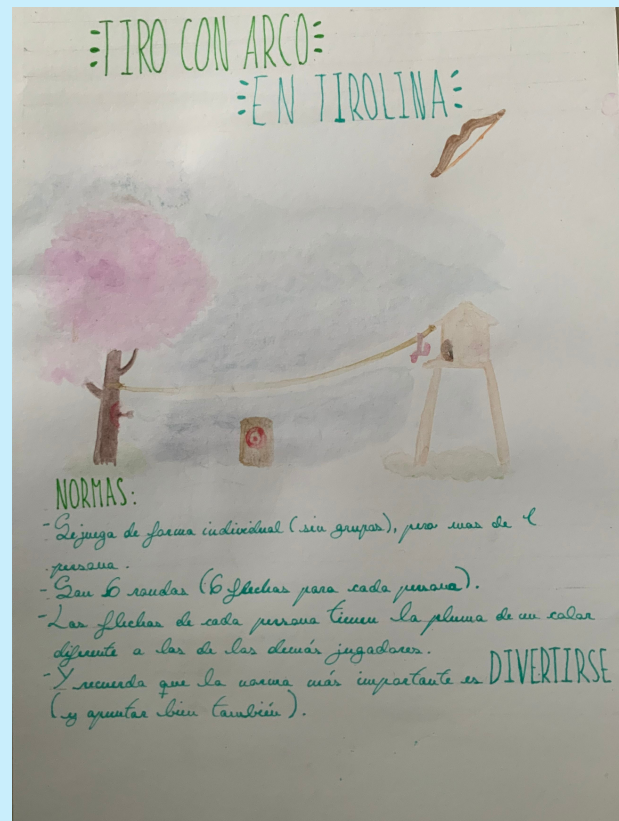 TIRO CON ARCO
EN TIROLINA
NORMAS:
- Se juega de forma individual (sin grupos), pero mas de 1
persona.
- Son 6 rondas (6 flechas para cada persona).
- Las flechas de cada persona tienen la pluma de un color
diferente a las de las demás jugadores.
- Y recuerda que la norma más importante es DIVERTIRSE
(y apuntar bien también).